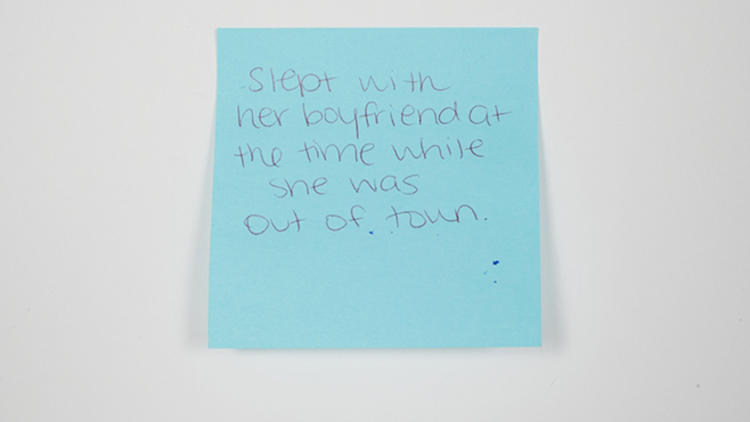 Slept with
her boyfriend at
the time while
she was
out of town.